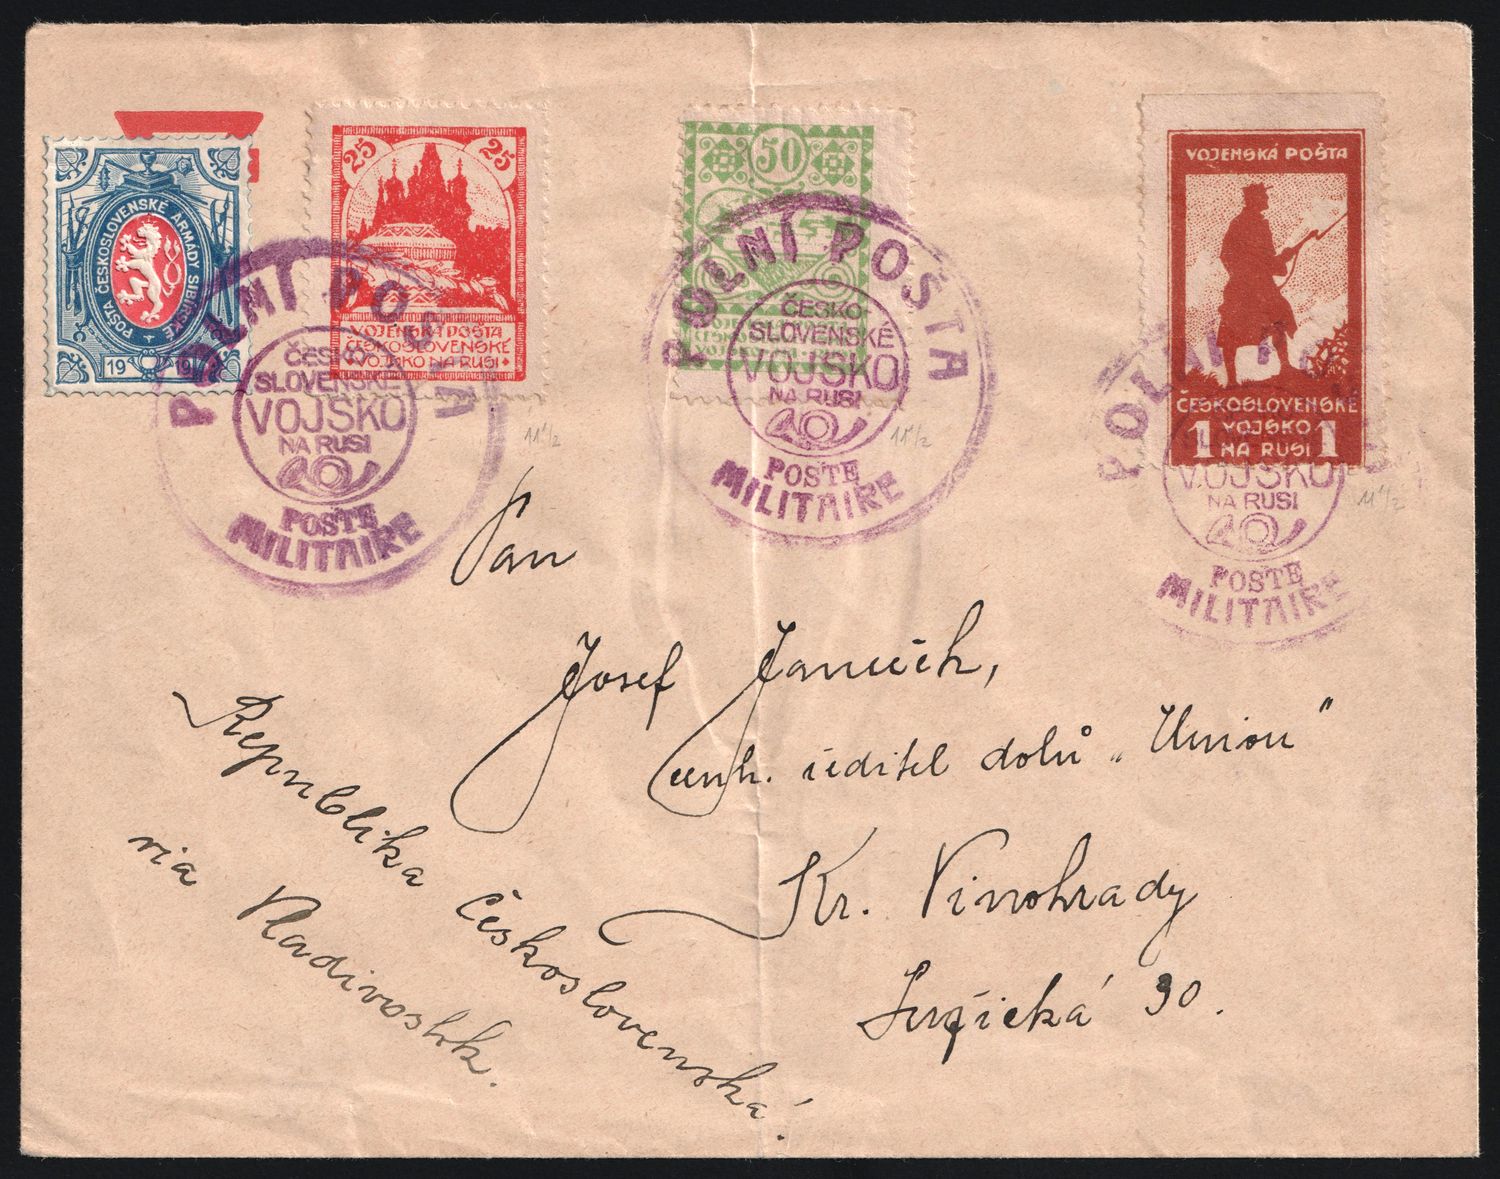 POŠTA ČESKOSLOVENSKÉ ARMÁDY SIBIŘSKÉ
19 19
25 25
VOJENSKÁ POŠTA
ČESKOSLOVENSKÉ
VOJSKO NA RUSI
50
VOJENSKÁ POŠTA
ČESKOSLOVENSKÉ
1 VOJSKO 1
NA RUSI
POLNÍ POŠTA
ČESKO-
SLOVENSKÉ
VOJSKO
NA RUSI
POSTE
MILITAIRE
POLNÍ POŠTA
ČESKO-
SLOVENSKÉ
VOJSKO
NA RUSI
POSTE
MILITAIRE
POLNÍ
VOJSKO
NA RUSI
POSTE
MILITAIRE
11 1/2
11 1/2
11 1/2
Pan
Josef
ředitel dolů „Union"
Kr. Vinohrady
Lužická 30.
Republika Československá!
via Vladivostok.